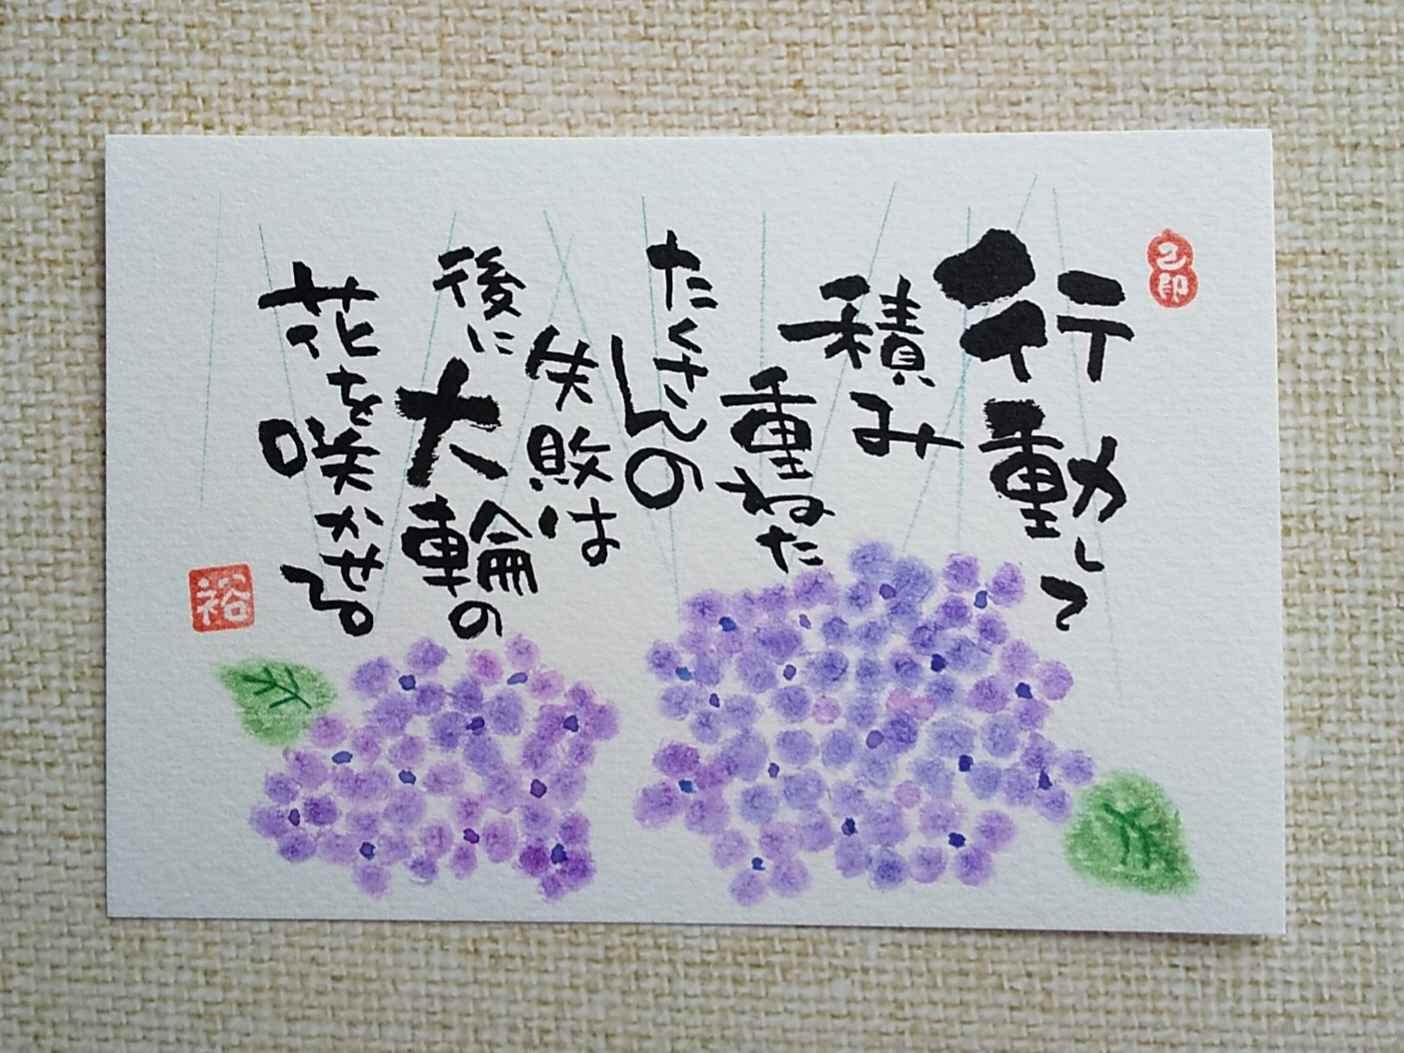 行動して
積み
重ねた
たくさんの
失敗は
後に
大輪の
花を
咲かせる
裕